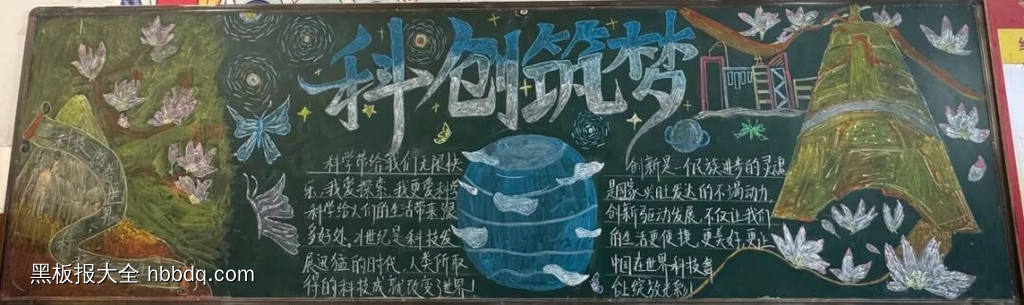 科创筑梦
科技改变世界
科学带给我们无限快
乐,我爱探索,我更爱科学
科学给人们的生活带来很
多好处。21世纪是科技发
展迅猛的时代,人类所取
得的科技成就改变了世界!
创新是一个民族进步的灵魂
是国家兴旺发达的不竭动力
创新引动发展,不仅让我们
的生活更便捷,更美好,更让
中国在世界科技舞
台让绽放光彩!
黑板报大全 hbbdq.com